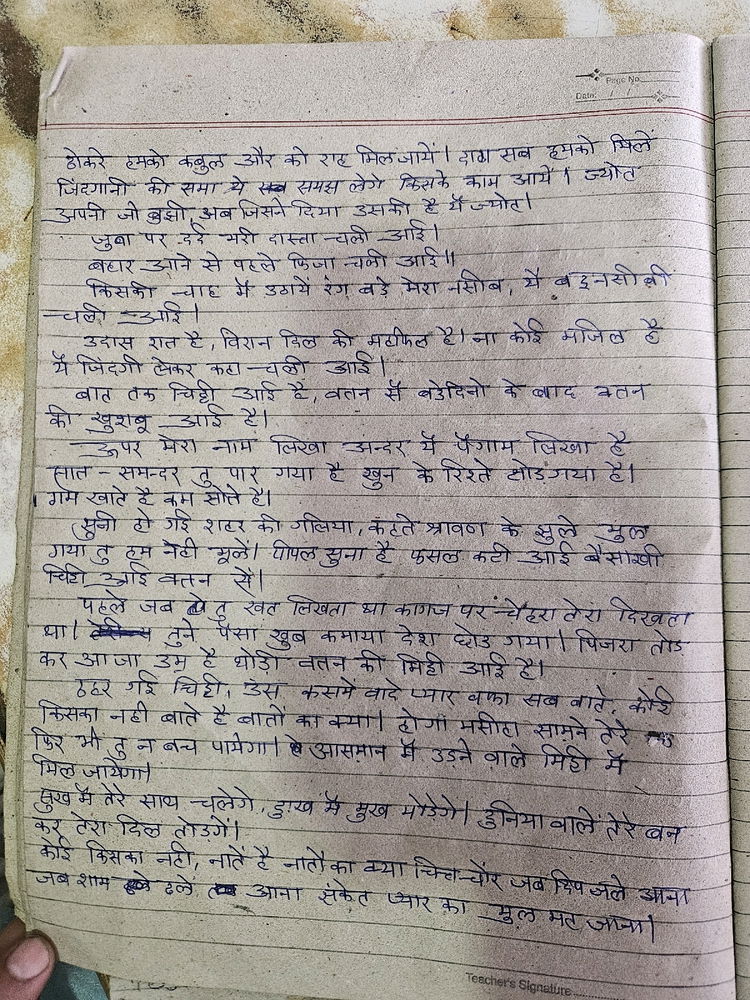 Page No.
Date:
ठोकरे हमको कबुल और को राह मिल जायें। दाग सब हमको मिलें
जिंदगानी की समा ये समझ लेगे किसके काम आयें। ज्योत
अपनी जो बुझी, अब जिसने दिया उसकी है ये ज्योत।
जुबा पर दर्द भरी दास्ता चली आई।
बहार आने से पहले फिजा चली आई॥
किसकी चाह में उठाये रंग बडे मेरा नसीब, ये बदनसीबी
चली आई।
उदास रात है, विरान दिल की महफिल है। ना कोई मंजिल है
ये जिंदगी लेकर कहा चली आई।
बात तक चिट्टी आई है, वतन से बडेदिनो के बाद वतन
की खुशबू आई है।
ऊपर मेरा नाम लिखा अन्दर ये पैगाम लिखा है
सात - समन्दर तु पार गया है खुन के रिश्ते तोड़ गया है।
गम खाते है कम सोते है।
सुनी हो गई शहर की गलिया, कहते श्रावण के झुले भुल
गया तु हम नही भूलें। पीपल सुना है फसल कटी आई बैसाखी
चिट्टी आई वतन से।
पहले जब तु खत लिखता था कागज पर चेहरा तेरा दिखता
था। तुने पैसा खुब कमाया देश छोड गया। पिंजरा तोड़
कर आ जा उम्र है थोड़ी वतन की मिट्टी आई है।
ठहर गई चिट्टी, उस कसमें वादे प्यार वफा सब वाते, कोई
किसका नही बाते है बातों का क्या। होगा मसीहा सामने तेरे
फिर भी तु न बच पायेगा। आसमान में उडने वाले मिट्टी में
मिल जायेगा।
सुख में तेरे साथ चलेगे, दुःख में मुख मोडेगे। दुनिया वाले तेरे बन
कर तेरा दिल तोडगें।
कोई किसका नही, नातें है नातों का क्या चित्त-चोर जब दिप जले आना
जब शाम ढले आना संकेत प्यार का भुल मत जाना।
Teacher's Signature